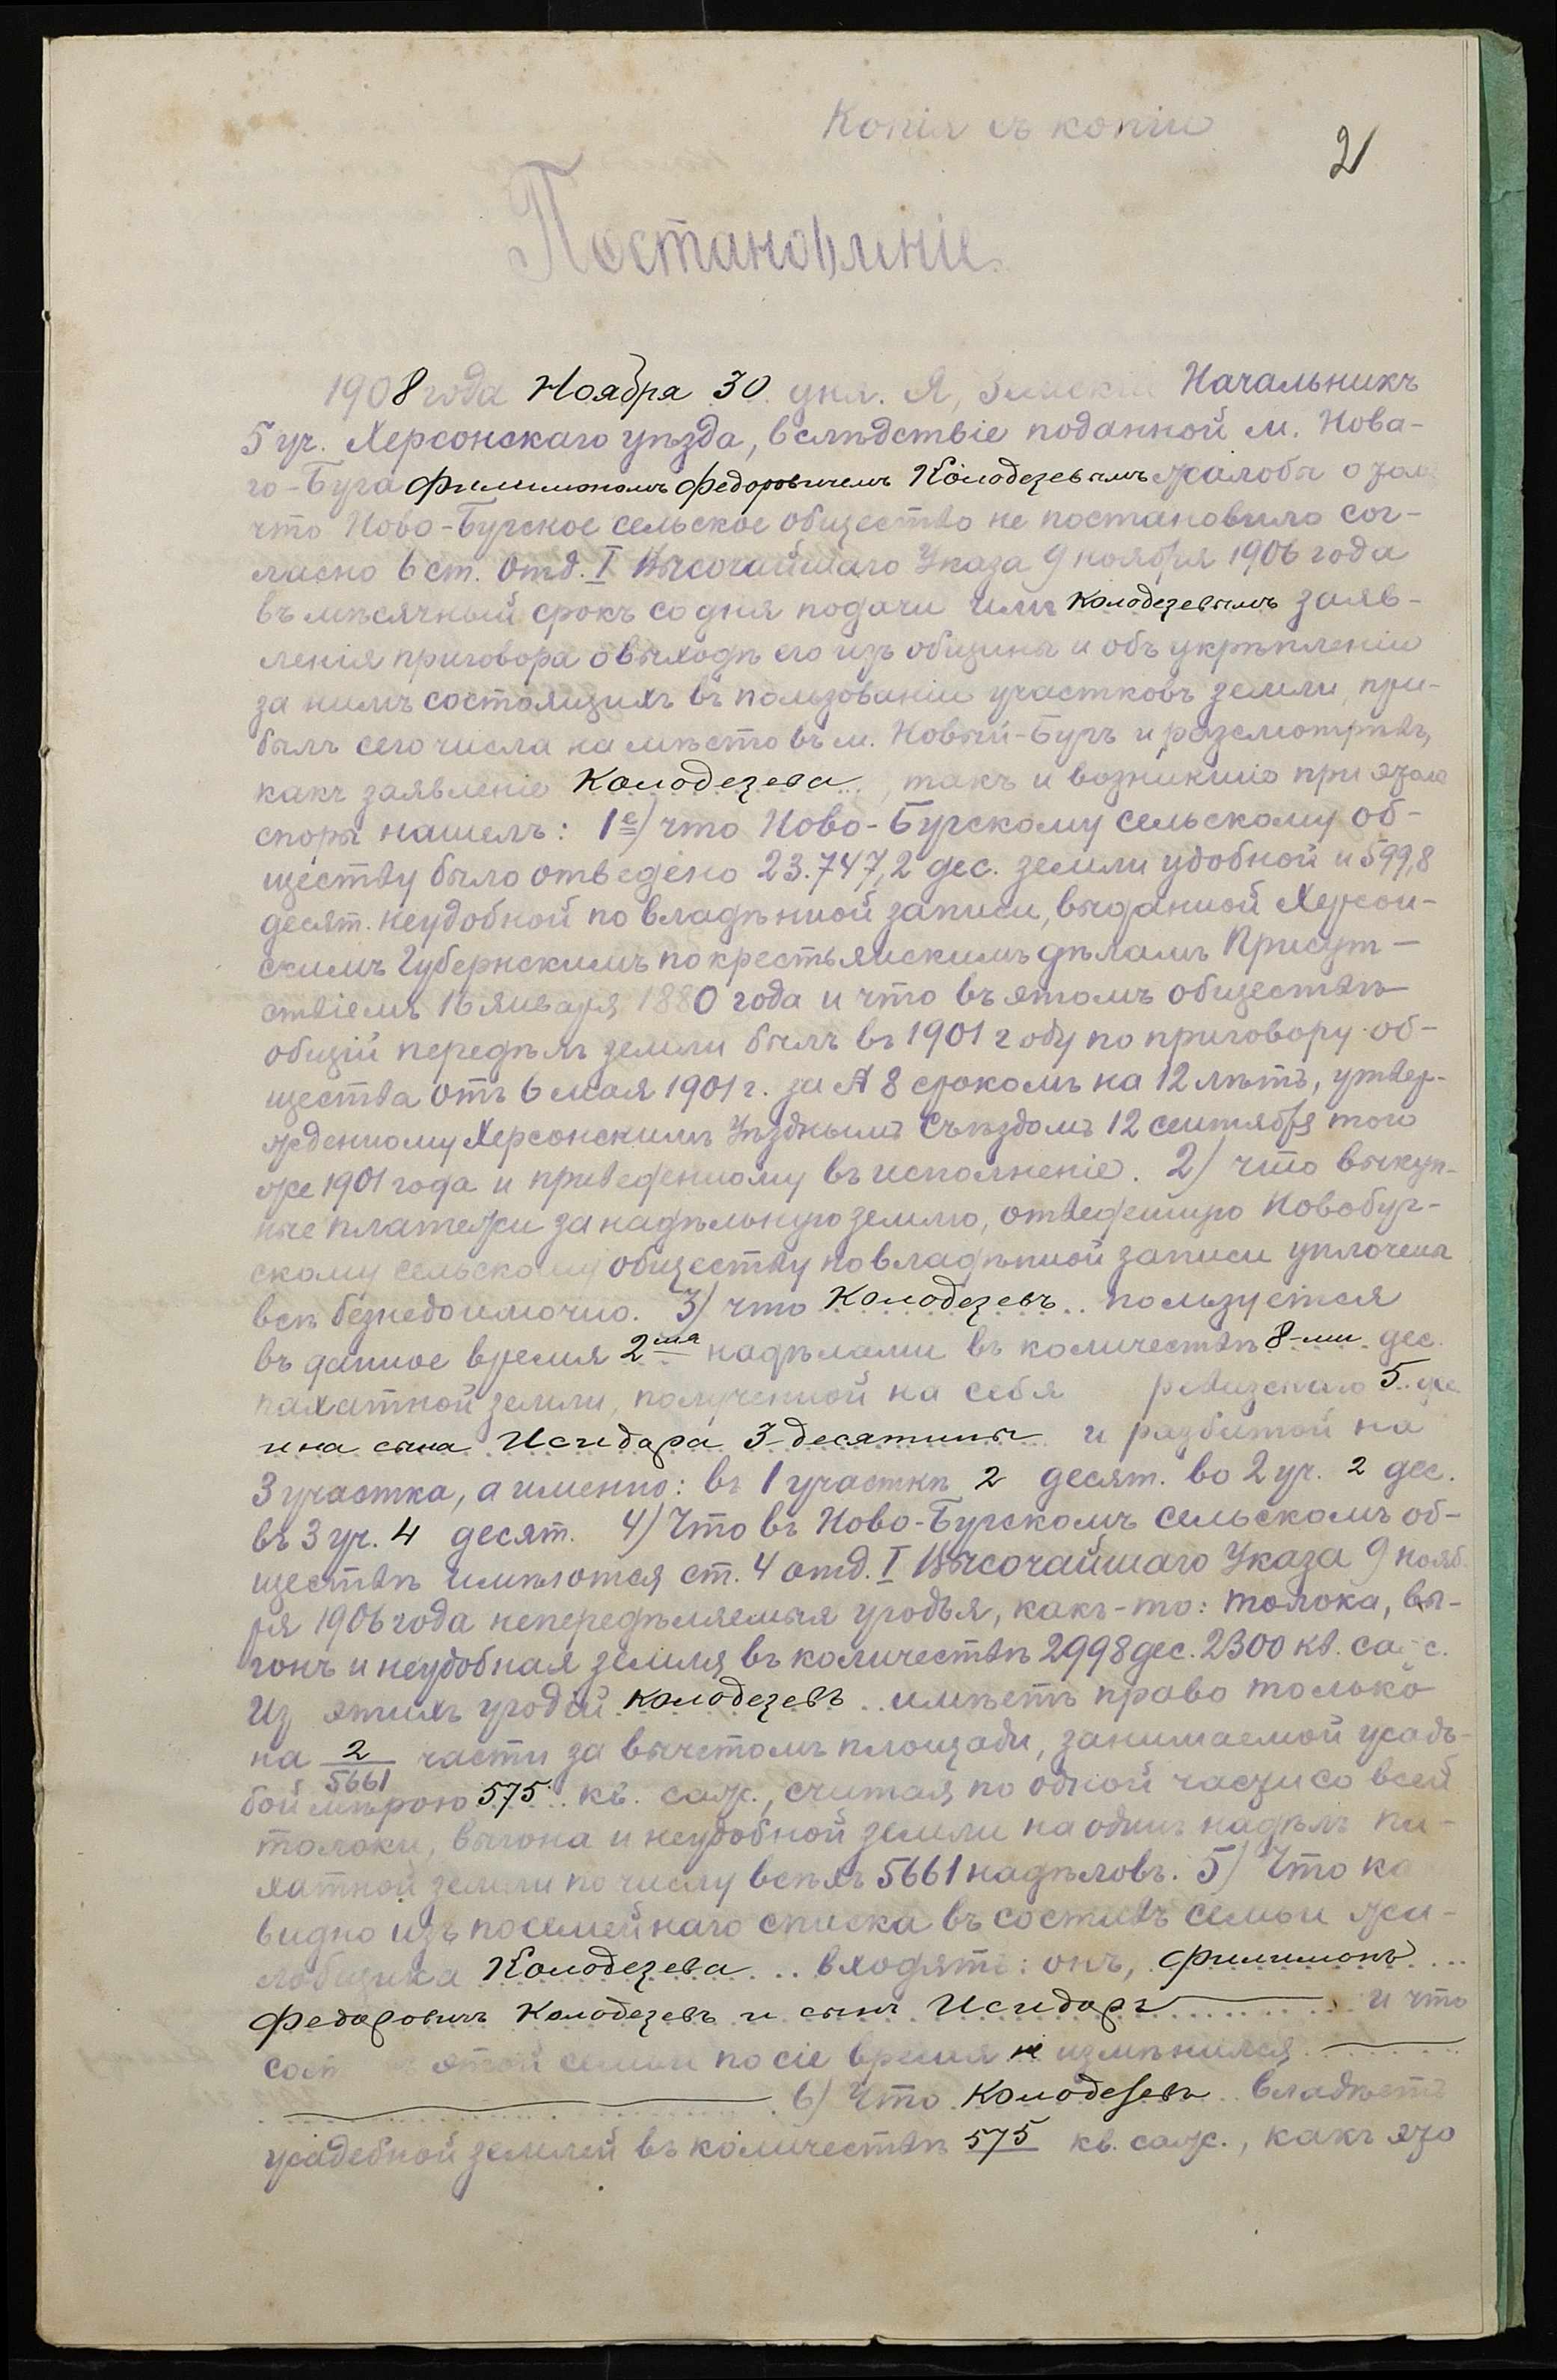 Копія съ копіи
2
Постановленіе
1908 года Ноября 30 дня. Я, Земскій Начальникъ
5 уч. Херсонскаго уѣзда, вслѣдствіе поданной м. Нова-
го-Буга Филимономъ Федоровичемъ Колодезевымъ жалобы о томъ
что Ново-Бугское сельское общество не постановило сог-
ласно 6 ст. Отд. I Высочайшаго Указа 9 ноября 1906 года
въ мѣсячный срокъ со дня подачи имъ Колодезевымъ заяв-
ленія приговора о выходѣ его изъ общины и объ укрѣпленіи
за нимъ состоящихъ въ пользованіи участковъ земли, при-
былъ сего числа на мѣсто въ м. Новый-Бугъ и разсмотрѣвъ,
какъ заявленіе Колодезева, такъ и возникшіе при этомъ
споры нашелъ: 1е) что Ново-Бугскому сельскому об-
ществу было отведено 23.747,2 дес. земли удобной и 599,8
десят. неудобной по владѣнной записи, выданной Херсон-
скимъ Губернскимъ по крестьянскимъ дѣламъ Присут-
ствіемъ 16 января 1880 года и что въ этомъ обществѣ
общій передѣлъ земли былъ въ 1901 году по приговору об-
щества отъ 6 мая 1901 г. за № 8 срокомъ на 12 лѣтъ, утвер-
жденному Херсонскимъ Уѣзднымъ Съѣздомъ 12 сентября того
же 1901 года и приведенному въ исполненіе. 2) что выкуп-
ные платежи за надѣльную землю, отведенную Новобуг-
скому сельскому обществу по владѣнной записи уплочены
всѣ бездоимочно. 3) что Колодезевъ пользуется
въ данное время 2мя надѣлами въ количествѣ 8-ми дес.
пахатной земли, полученной на себя ревизскаго 5 де
и на сына Исидара 3 десятины и разбитой на
3 участка, а именно: въ 1 участкѣ 2 десят. во 2 уч. 2 дес.
въ 3 уч. 4 десят. 4) Что въ Ново-Бугскомъ сельскомъ об-
ществѣ имѣются ст. 4 отд. I Высочайшаго Указа 9 нояб-
ря 1906 года непередѣляемыя угодья, какъ-то: толока, вы-
гонъ и неудобная земля въ количествѣ 2998 дес. 2300 кв. саж.
Из этихъ угодій Колодезевъ имѣетъ право только
на 2/5661 части за вычетомъ площади, занимаемой усадь-
бой мѣрою 575 кв. саж., считая по одной части со всей
толоки, выгона и неудобной земли на одинъ надѣлъ па-
хатной земли по числу всѣхъ 5661 надѣловъ. 5) Что ка
видно изъ посемейнаго списка въ составъ семьи жа-
лобщика Колодезева входятъ: онъ, Филимонъ
Федоровичъ Колодезевъ и сынъ Исидаръ и что
сост этой семьи по сіе время не измѣнился
6) Что Колодезевъ владѣетъ
усадебной землей въ количествѣ 575 кв. саж., какъ это